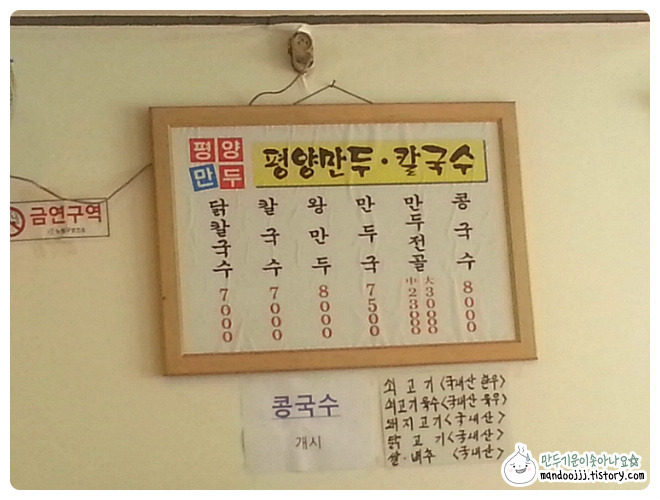 평양
만두
평양만두·칼국수
닭칼국수 7000
칼국수 7000
왕만두 8000
만두국 7500
만두전골 中23000 大30000
콩국수 8000
금연구역
콩국수
개시
쇠고기<국내산 한우>
쇠고기육수<국내산 육우>
돼지고기<국내산>
닭고기<국내산>
쌀·배추 <국내산>
만두기운이솟아나요☆
mandoojjj.tistory.com